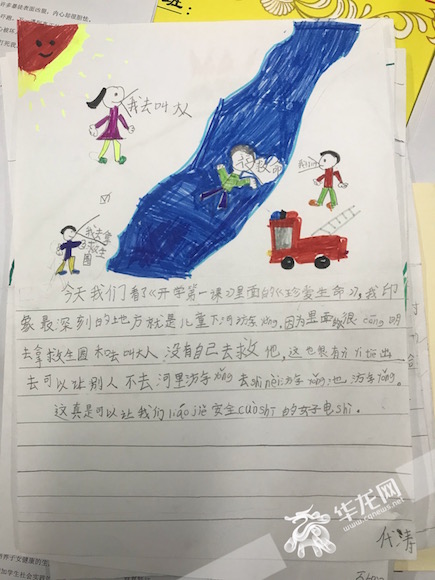 我去叫大人
救命
我去拿救生圈
今天我们看了《开学第一课》里面的《珍爱生命》,我印
象最深刻的地方就是儿童下河游yǒng,因为里面很cōng明
去拿救生圈和去叫大人没有自己去救他,这也很有
去可以让别人不去河里游yǒng去nèi游yǒng池游yǒng。
这真是可以让我们liǎo安全cuòshī的好电shì。
华龙网
www.cqnews.net